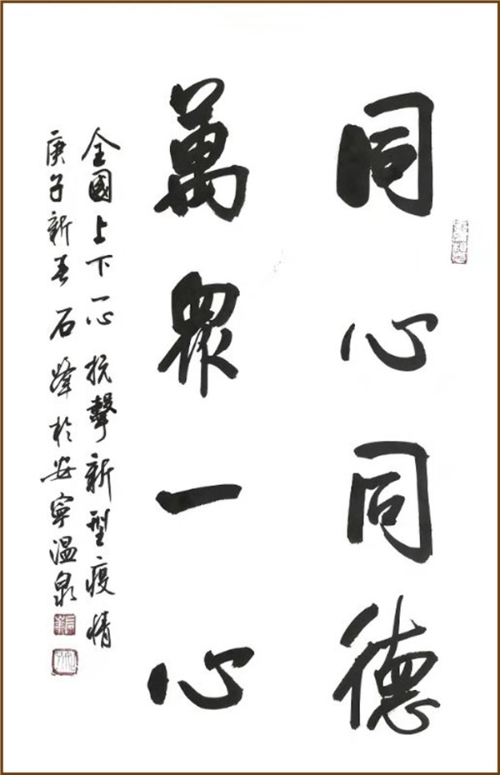 同心同德
萬眾一心
全國上下一心抗擊新型疫情
庚子新春石峰於安寧溫泉